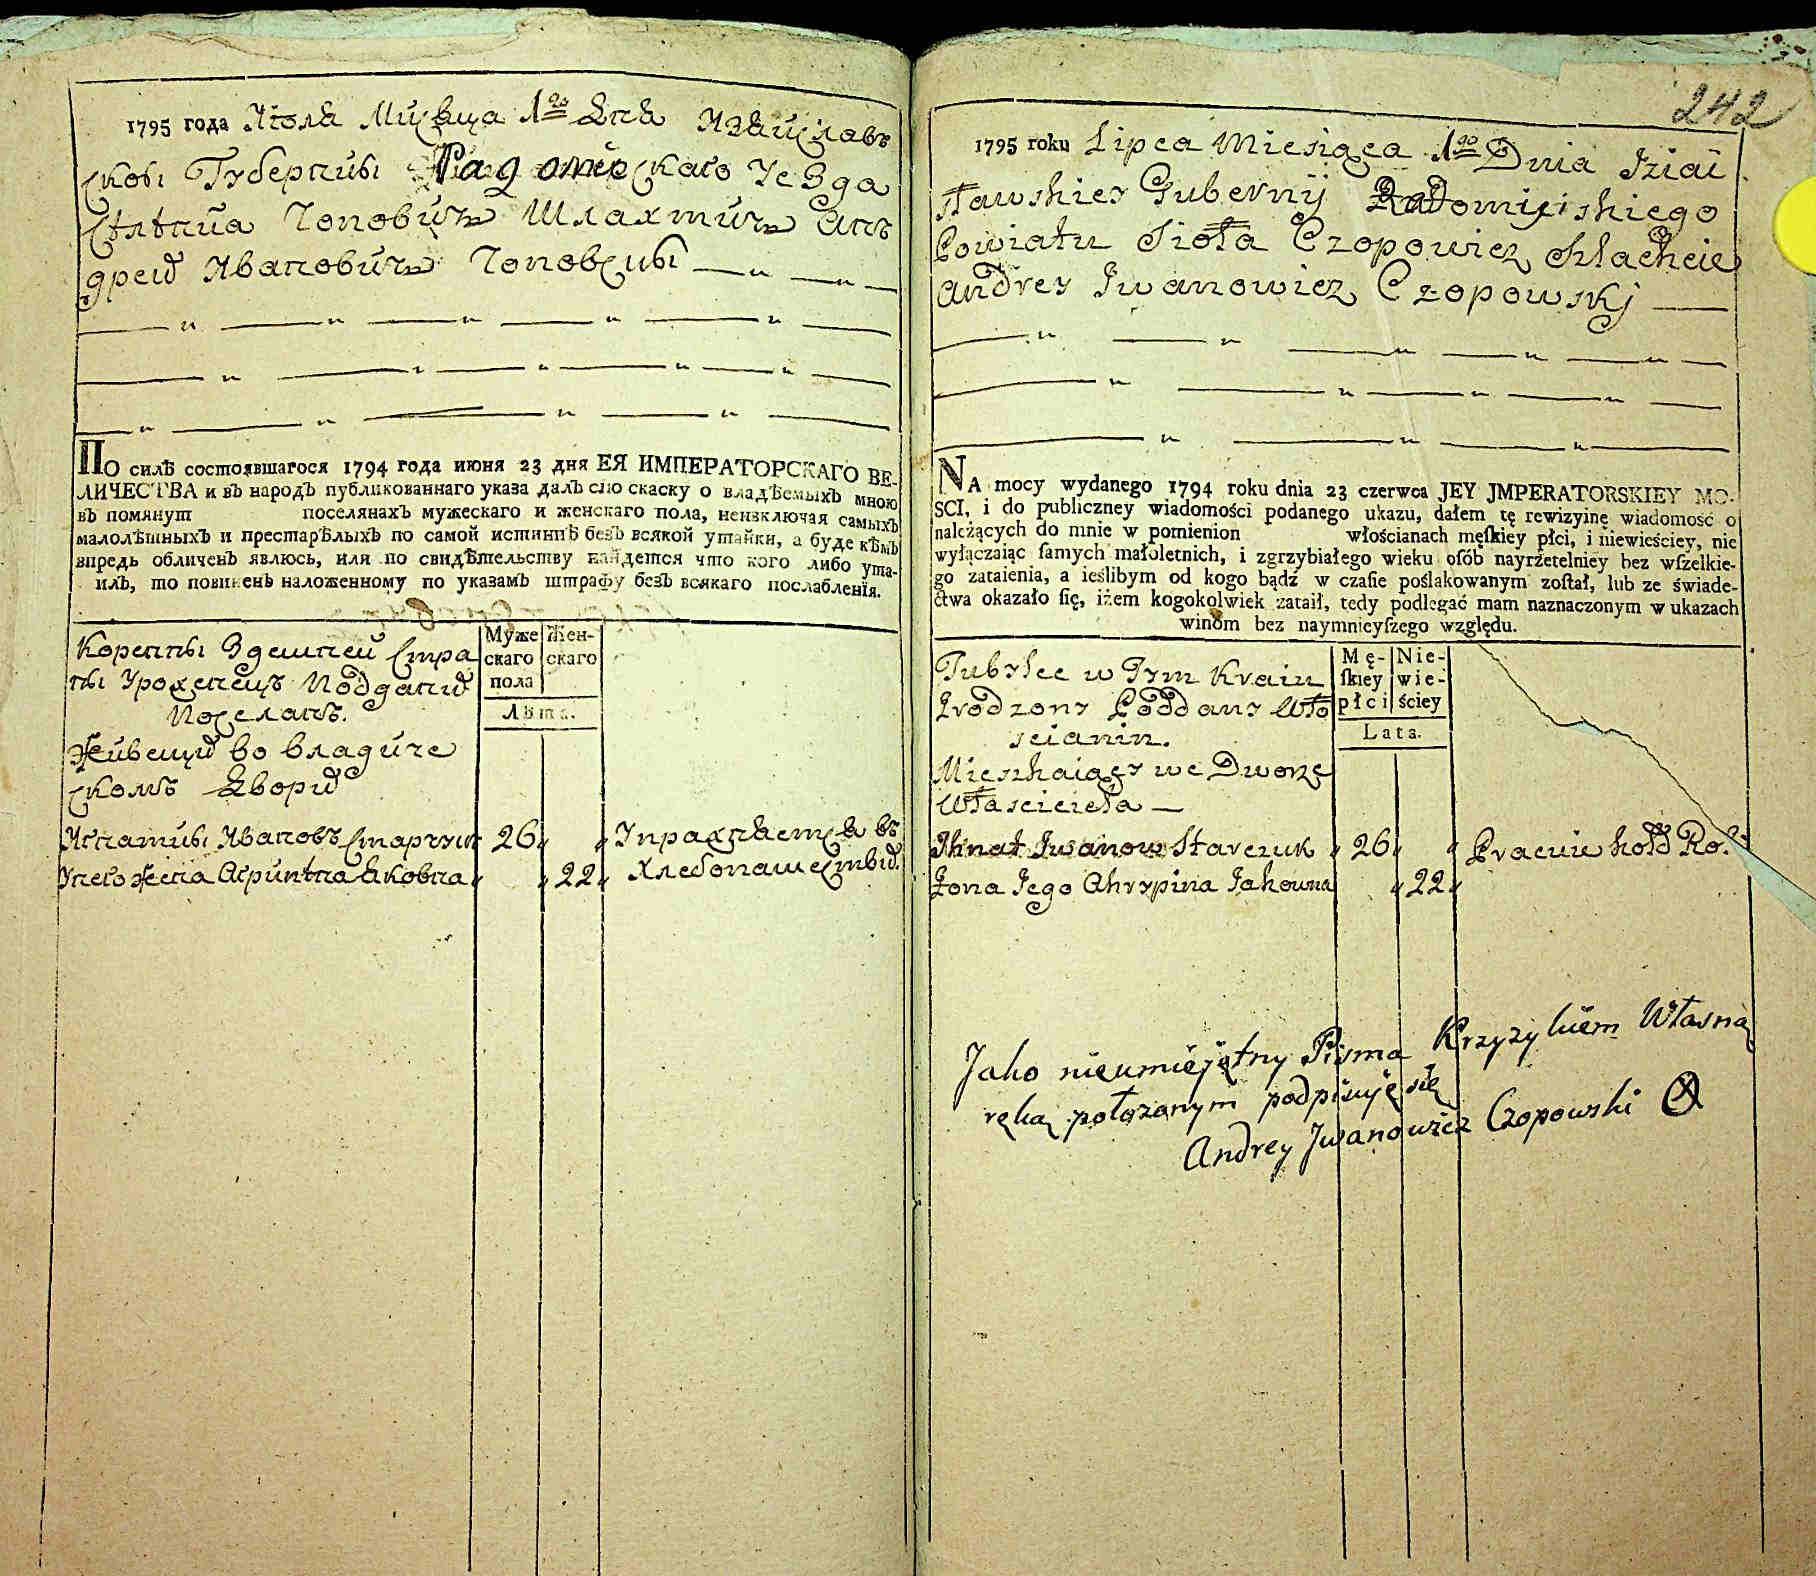 1795 года Июля Мисяца 1го Дня Изяиславъ
ской Губерний Радомиского Уезда
Селения Чоповичъ Шляхтичъ Ань
дрей Ивановичъ Чоповский
ПО силѣ состоявшагося 1794 года июня 23 дня ЕЯ ИМПЕРАТОРСКАГО ВЕ-
ЛИЧЕСТВА и въ народъ публикованнаго указа далъ сію скаску о владѣемыхъ мною
въ помянут поселянахъ мужескаго и женскаго пола, неизключая самыхъ
малолѣтныхъ и престарѣлыхъ по самой истиннѣ безъ всякой утайки, а буде кѣмъ
впредь обличенъ явлюсь, или по свидѣтельству найдется что кого либо ута-
илъ, то повиненъ наложенному по указамъ штрафу безъ всякаго послабленія.
Муже
скаго
пола
Жен-
скаго
Лѣта.
Коренны Здешней Стра
ны Уроженецъ Поддани
Поселанъ.
Живещий во владиче
скомъ Двори
Игнатий Ивановъ Старчукъ 26
Унего Жена Агрипѣна Яковна 22
Упражняется въ
Хлебопашестви.
242
1795 roku Lipca Miesiąca 1go Dnia Iziai
sławskiey Gubernij Radomiskiego
Powiatu Sioła Czopowicz Szlachcic
Andrey Iwanowicz Czopowskj
NA mocy wydanego 1794 roku dnia 23 czerwca JEY JMPERATORSKIEY MO-
SCI, i do publiczney wiadomości podanego ukazu, dałem tę rewizyinę wiadomość o
należących do mnie w pomienion włościanach męſkiey płci, i niewieściey, nie
wyłączaiąc ſamych małoletnich, i zgrzybiałego wieku oſób nayrżetelniey bez wſzelkie-
go zataienia, a ieślibym od kogo bądź w czaſie poślakowanym zoſtał, lub ze świade-
ctwa okazało ſię, iżem kogokolwiek zataił, tedy podlegać mam naznaczonym w ukazach
winom bez naymnieyſzego względu.
Mę-
ſkiey
płci
Nie-
wie-
ściey
Lata.
Tubylec w Tym Kraiu
Zrodzony Poddany Wło
scianin.
Mieszkaiący we Dworze
Własciciela
Ihnat Iwanow Starczuk 26
Żona Jego Ahrypina Jakowna 22
Jako nieumiejętny Pisma Krzyzykiem Własną
ręką położonym podpisuję się
Andrey Jwanowicz Czopowski